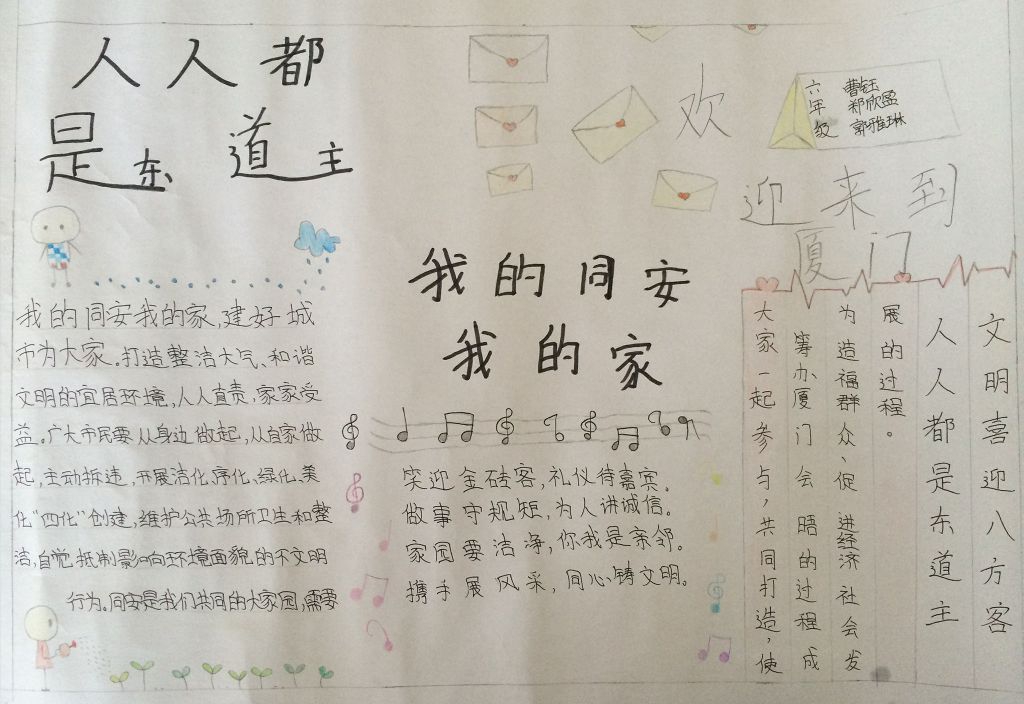 人人都
是东道主
我的同安我的家,建好城
市为大家。打造整洁大气、和谐
文明的宜居环境,人人直责,家家受
益。广大市民要从身边做起,从自家做
起,主动拆违,开展洁化、序化、绿化、美
化“四化”创建,维护公共场所卫生和整
洁,自觉抵制影响环境面貌的不文明
行为。同安是我们共同的大家园,需要
我的同安
我的家
笑迎金砖客,礼仪待嘉宾。
做事守规矩,为人讲诚信。
家园要洁净,你我是亲邻。
携手展风采,同心铸文明。
六年级
曹钰
郑欣盈
郭雅琳
欢
迎来到
厦门
文明喜迎八方客
人人都是东道主
大家一起参与,共同打造,使
筹办厦门会晤的过程成
为造福群众、促进经济社会发
展的过程。